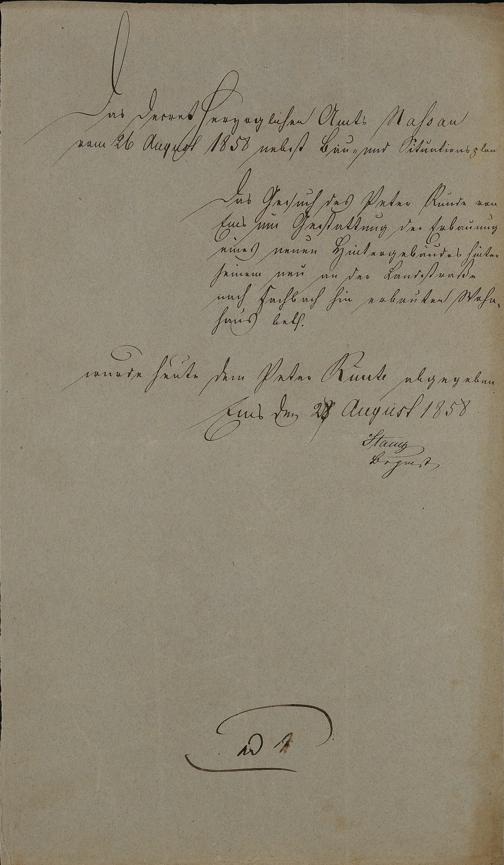 Das Decret Herzoglichen Amts Nassau
vom 26 August 1858 nebst Bau- und Situationsplan
Das Gesuch des Peter Kunde von
Ems um Gestattung der Erbauung
eines neuen Hintergebäudes hinter
seinem neu an der Landstraße
nach Fachbach hin erbauten Wohn-
haus betr.
wurde heute dem Peter abgegeben
Ems den August 1858
ad 1